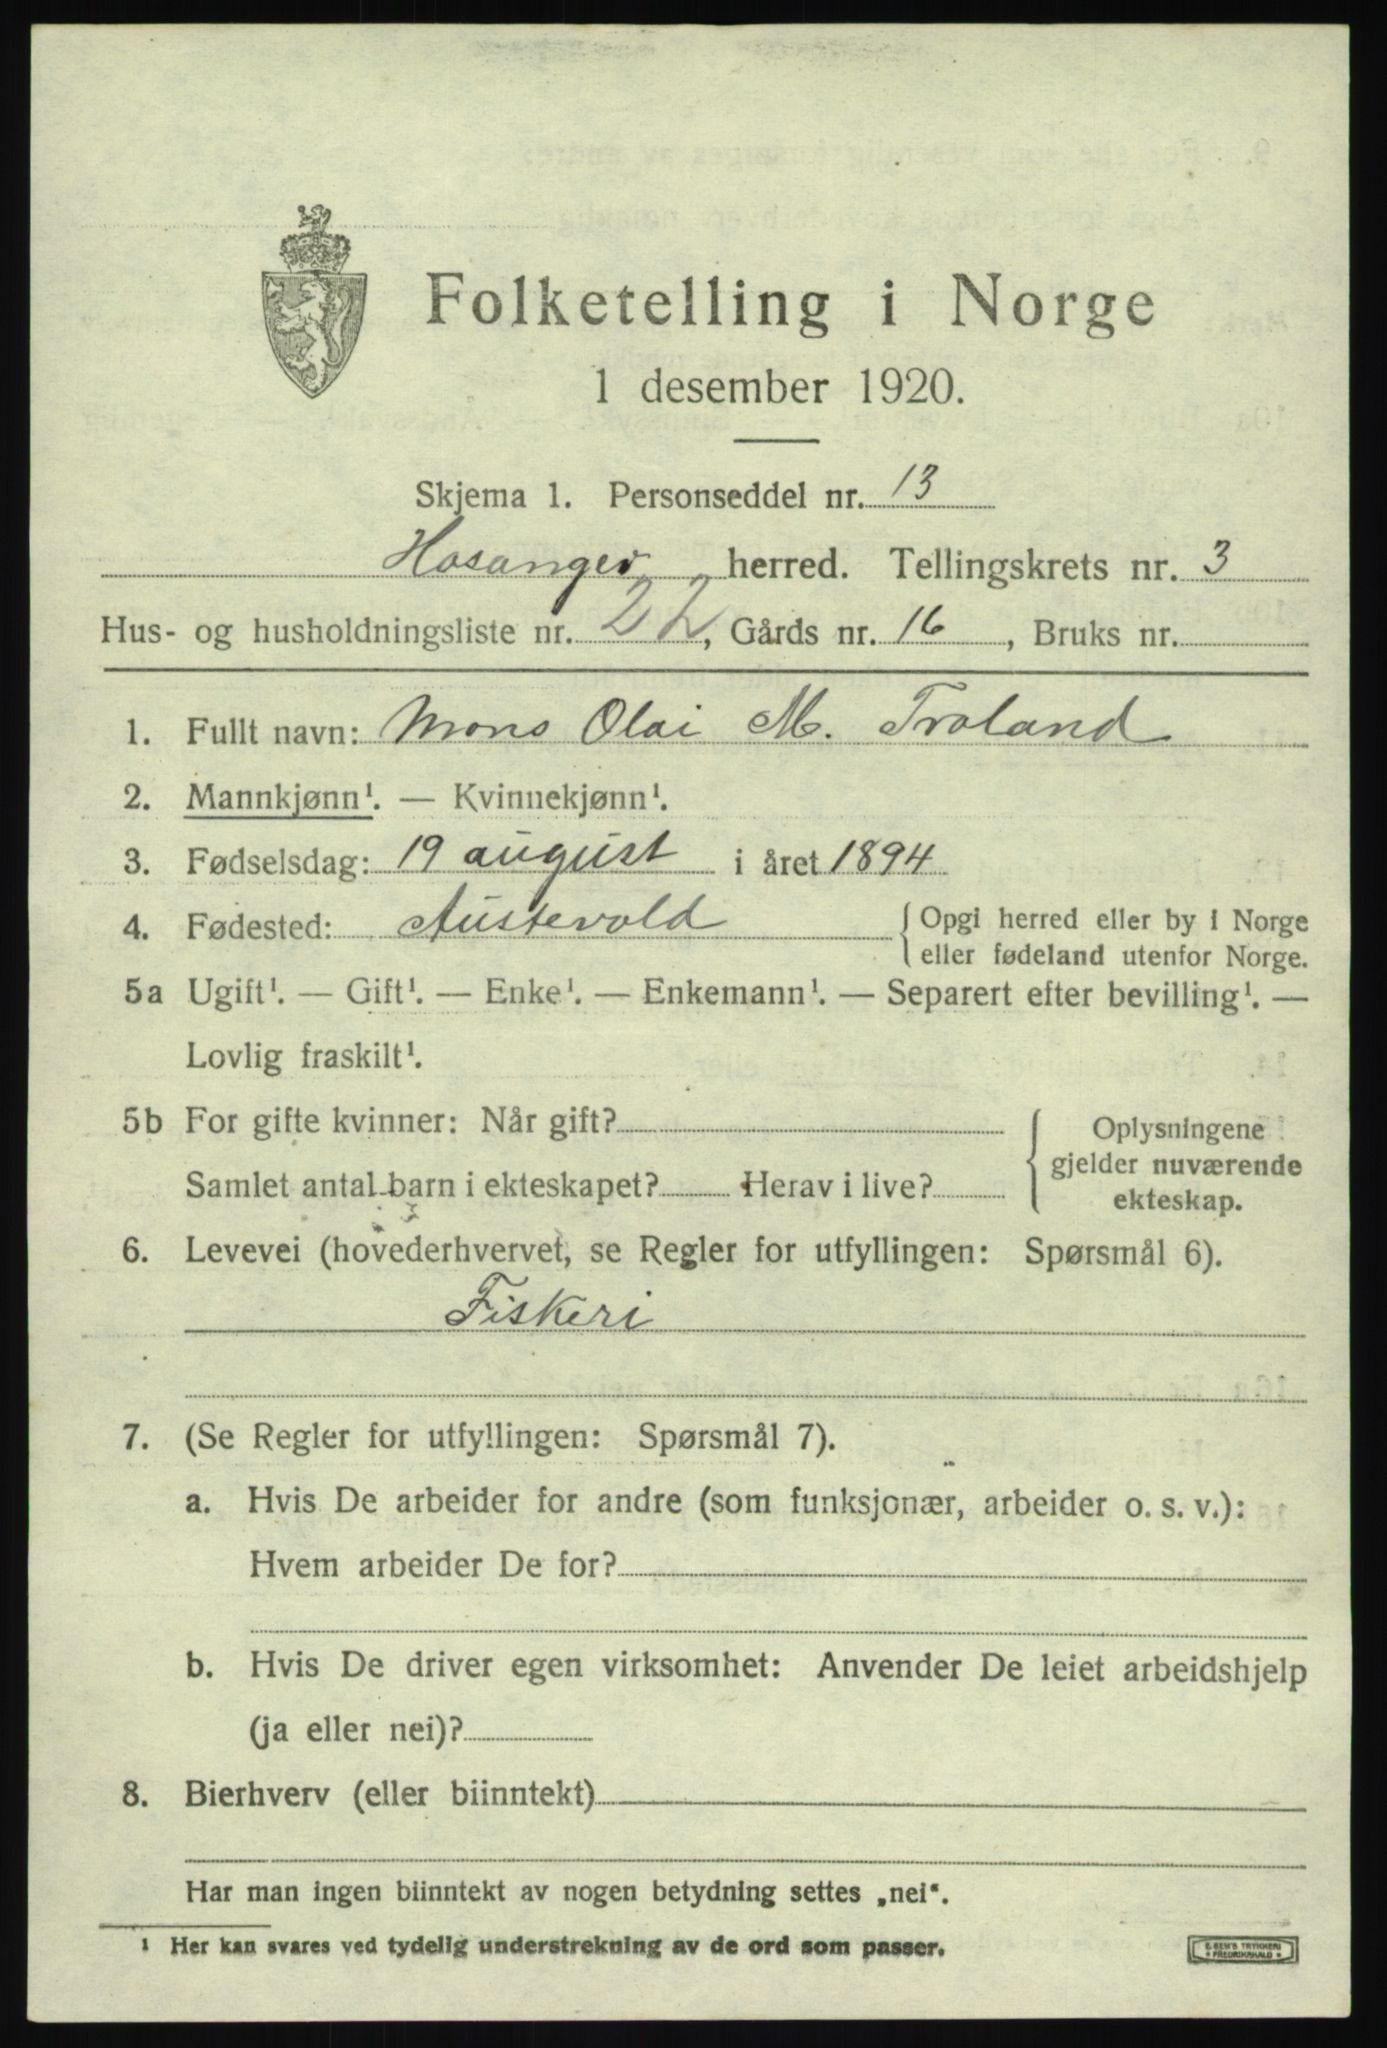 Folketelling i Norge
1 desember 1920.
Skjema 1. Personseddel nr. 13
Hosanger herred. Tellingskrets nr. 3
Hus- og husholdningsliste nr. 22, Gårds nr. 16, Bruks nr.
1. Fullt navn: Mons Olai M. Troland
2. Mannkjønn¹. — Kvinnekjønn¹.
3. Fødselsdag: 19 august i året 1894
4. Fødested: Austevold {Opgi herred eller by i Norge
eller fødeland utenfor Norge.
5a Ugift¹. — Gift¹. — Enke¹. — Enkemann¹. — Separert efter bevilling¹. —
Lovlig fraskilt¹.
5b For gifte kvinner: Når gift?
Samlet antal barn i ekteskapet? Herav i live?
Oplysningene
gjelder nuværende
ekteskap.
6. Levevei (hovederhvervet, se Regler for utfyllingen: Spørsmål 6).
Fiskeri
7. (Se Regler for utfyllingen: Spørsmål 7).
a. Hvis De arbeider for andre (som funksjonær, arbeider o. s. v.):
Hvem arbeider De for?
b. Hvis De driver egen virksomhet: Anvender De leiet arbeidshjelp
(ja eller nei)?
8. Bierhverv (eller biinntekt)
Har man ingen biinntekt av nogen betydning settes „nei“.
¹ Her kan svares ved tydelig understrekning av de ord som passer.
E. SEM'S TRYKKERI
FREDRIKSHALD